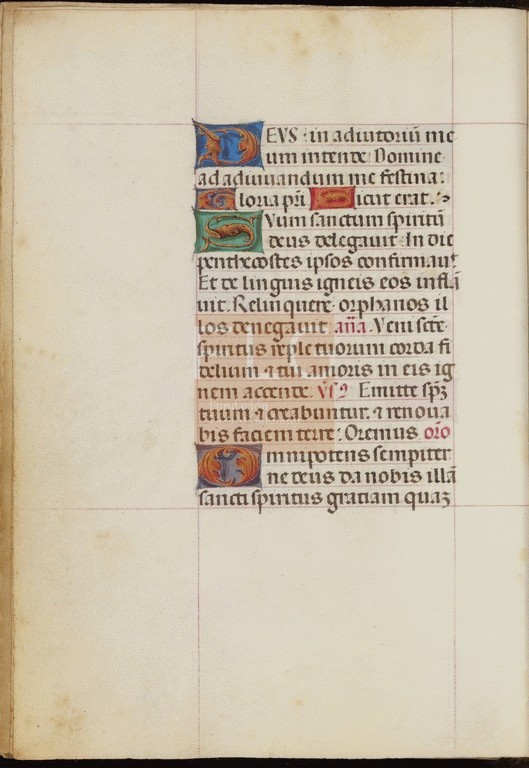 DEUS in adiutoriū me
um intende Domine
ad adiuuandum me festina:
Gloria pr̄i Sicut erat.
Suum sanctum spiritū
deus delegauit In die
penthecostes ipsos confirmauit
Et de linguis igneis eos inflā
uit. Relinquere orphanos il
los denegauit an̄a. Veni sc̄te
spiritus reple tuorum corda fi
delium ⁊ tui amoris in eis ig
nem accende. vsꝯ Emitte spʒ
tuum ⁊ creabuntur. ⁊ renoua
bis faciem terre: Oremus or̄o
Omnipotens sempiter
ne deus da nobis illā
sancti spiritus gratiam quaʒ